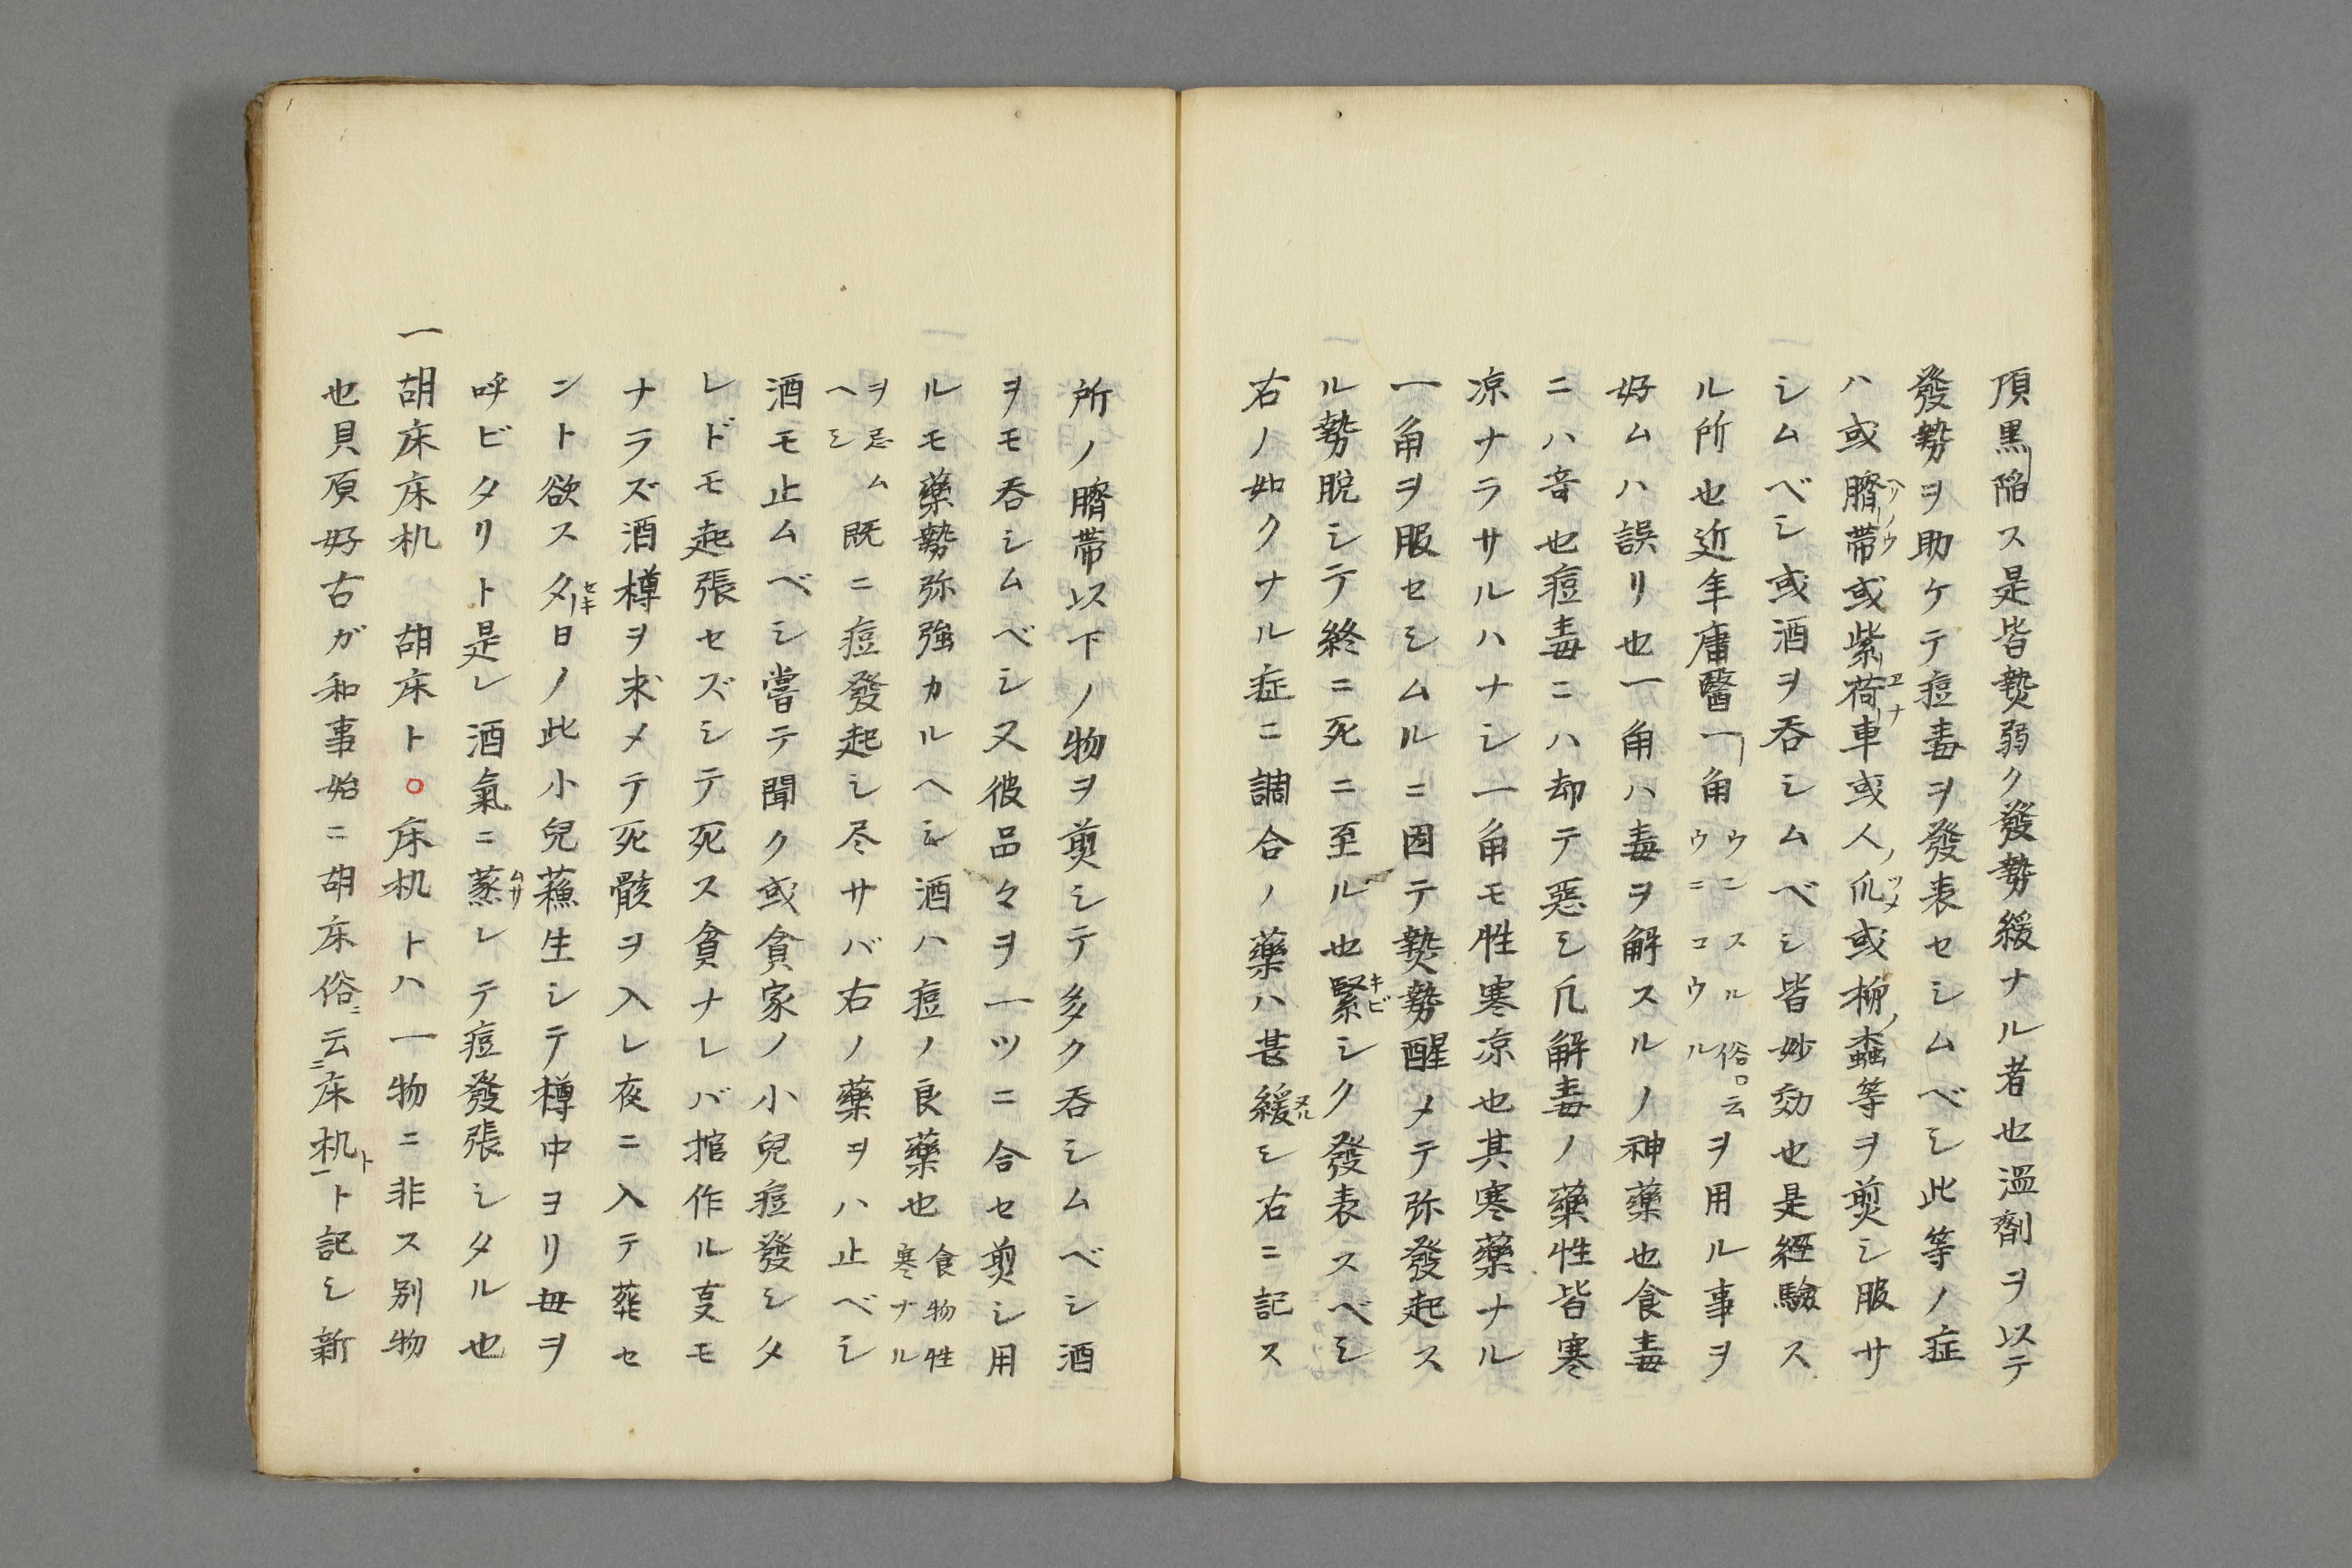 頂黒陥ス是皆㷍弱ク發勢緩ナル者也溫劑ヲ以テ
發勢ヲ助ケテ痘毒ヲ發表セシムベシ此等ノ症
ハ或臍帶或紫荷車或人爪或柳蟲等ヲ煎シ服サ
ヘソノヲ
ヱナ
ノツメ
ノ
シムベシ或酒ヲ呑シムベシ皆妙効也是經驗ス
ル所也近年庸醫一角
ウニスル俗云
ウニコウル
ヲ用ル事ヲ
好ムハ誤リ也一角ハ毒ヲ解スルノ神藥也食毒
ニハ音也痘毒ニハ却テ惡シ凢解毒ノ藥性皆寒
凉ナラサルハナシ一角モ性寒凉也其寒藥ナル
一角ヲ服セシムルニ因テ㷍勢醒メテ弥發起ス
ル勢脱シテ終ニ死ニ至ル也緊シク發表スベシ
キビ
右ノ如クナル症ニ調合ノ藥ハ甚緩シ右ニ記ス
ヌル
所ノ臍帶以下ノ物ヲ煎シテ多ク呑シムベシ酒
ヲモ呑シムベシ又彼品々ヲ一ツニ合セ煎シ用
ルモ藥勢弥強カルヘシ酒ハ痘ノ良藥也
食物性
寒ナル
ヲ忌ム
ヘシ
既ニ痘發起シ尽サバ右ノ藥ヲハ止ベシ
酒モ止ムベシ嘗テ聞ク或貧家ノ小兒痘發シタ
レドモ起張セズシテ死ス貧ナレバ棺作ル叓モ
ナラズ酒樽ヲ求メテ死骸ヲ入レ夜ニ入テ葬セ
ント欲ス夕日ノ此小兒蘓生シテ樽中ヨリ毋ヲ
セキ
呼ビタリト是レ酒氣ニ蒸レテ痘發張シタル也
ムサ
一胡床床机 胡床ト○床机トハ一物ニ非ス別物
也貝原好古ガ和事始ニ胡床俗ニ云床机ト記シ新